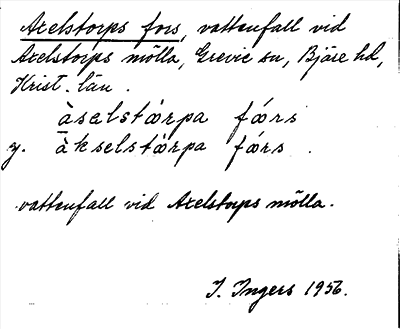 Axelstorps fors, vattenfall vid
Axelstorps mölla, Grevie sn, Bjäre hd,
Krist. län.
àselstǻrpa fǻrs
y. àkselstǻrpa fǻrs.
vattenfall vid Axelstorps mölla.
I. Ingers 1956.